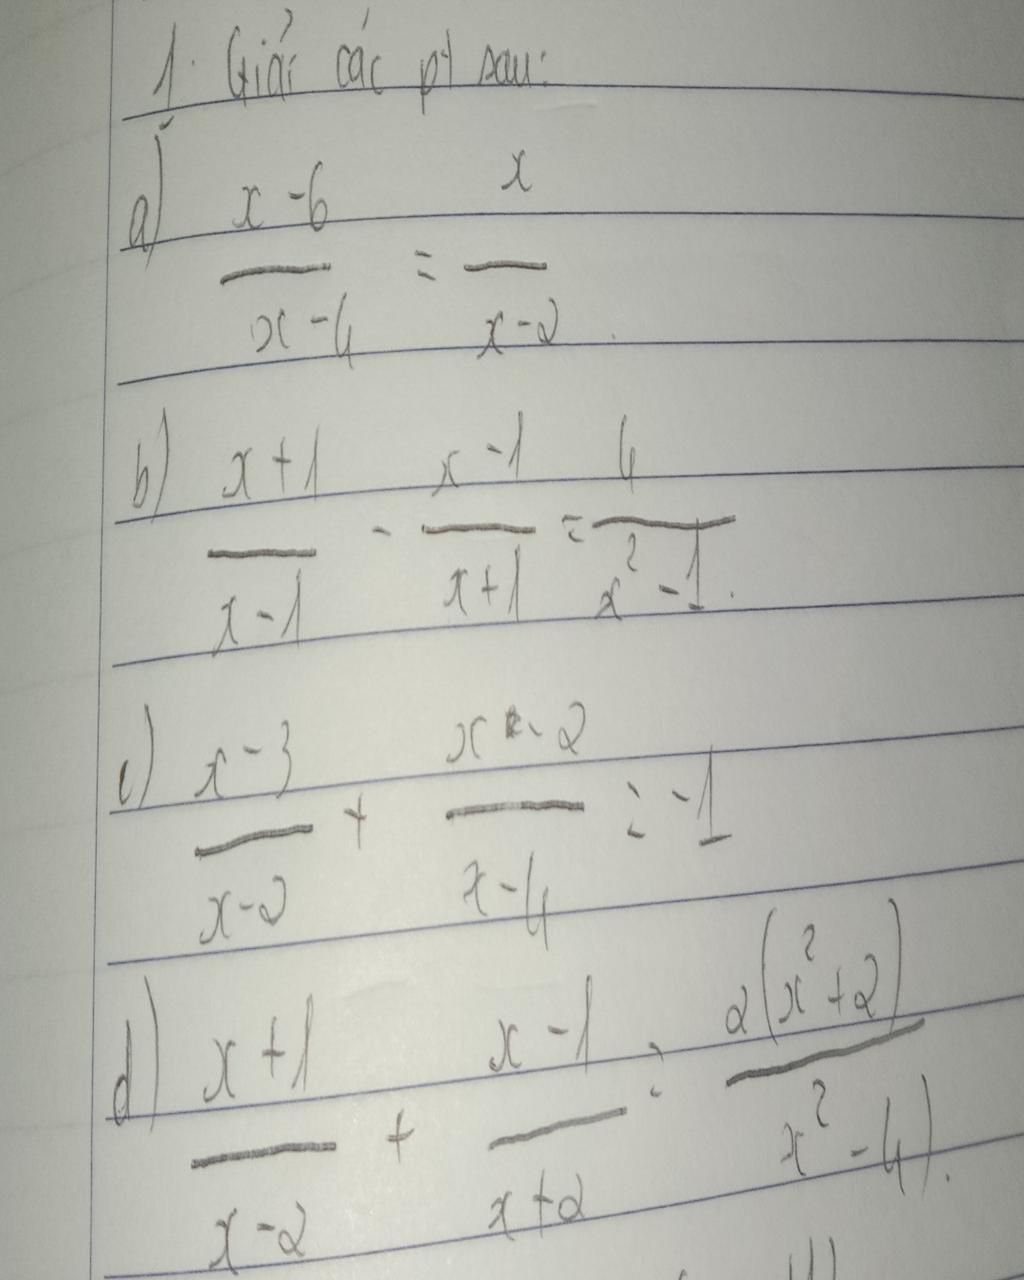 1. Giải các pt sau:
a) (x-6)/(x-4) = x/(x-2).
b) (x+1)/(x-1) - (x-1)/(x+1) = 4/(x²-1).
c) (x-3)/(x-2) + (x-2)/(x-4) = -1
d) (x+1)/(x-2) + (x-1)/(x+2) = 2(x²+2)/(x²-4).